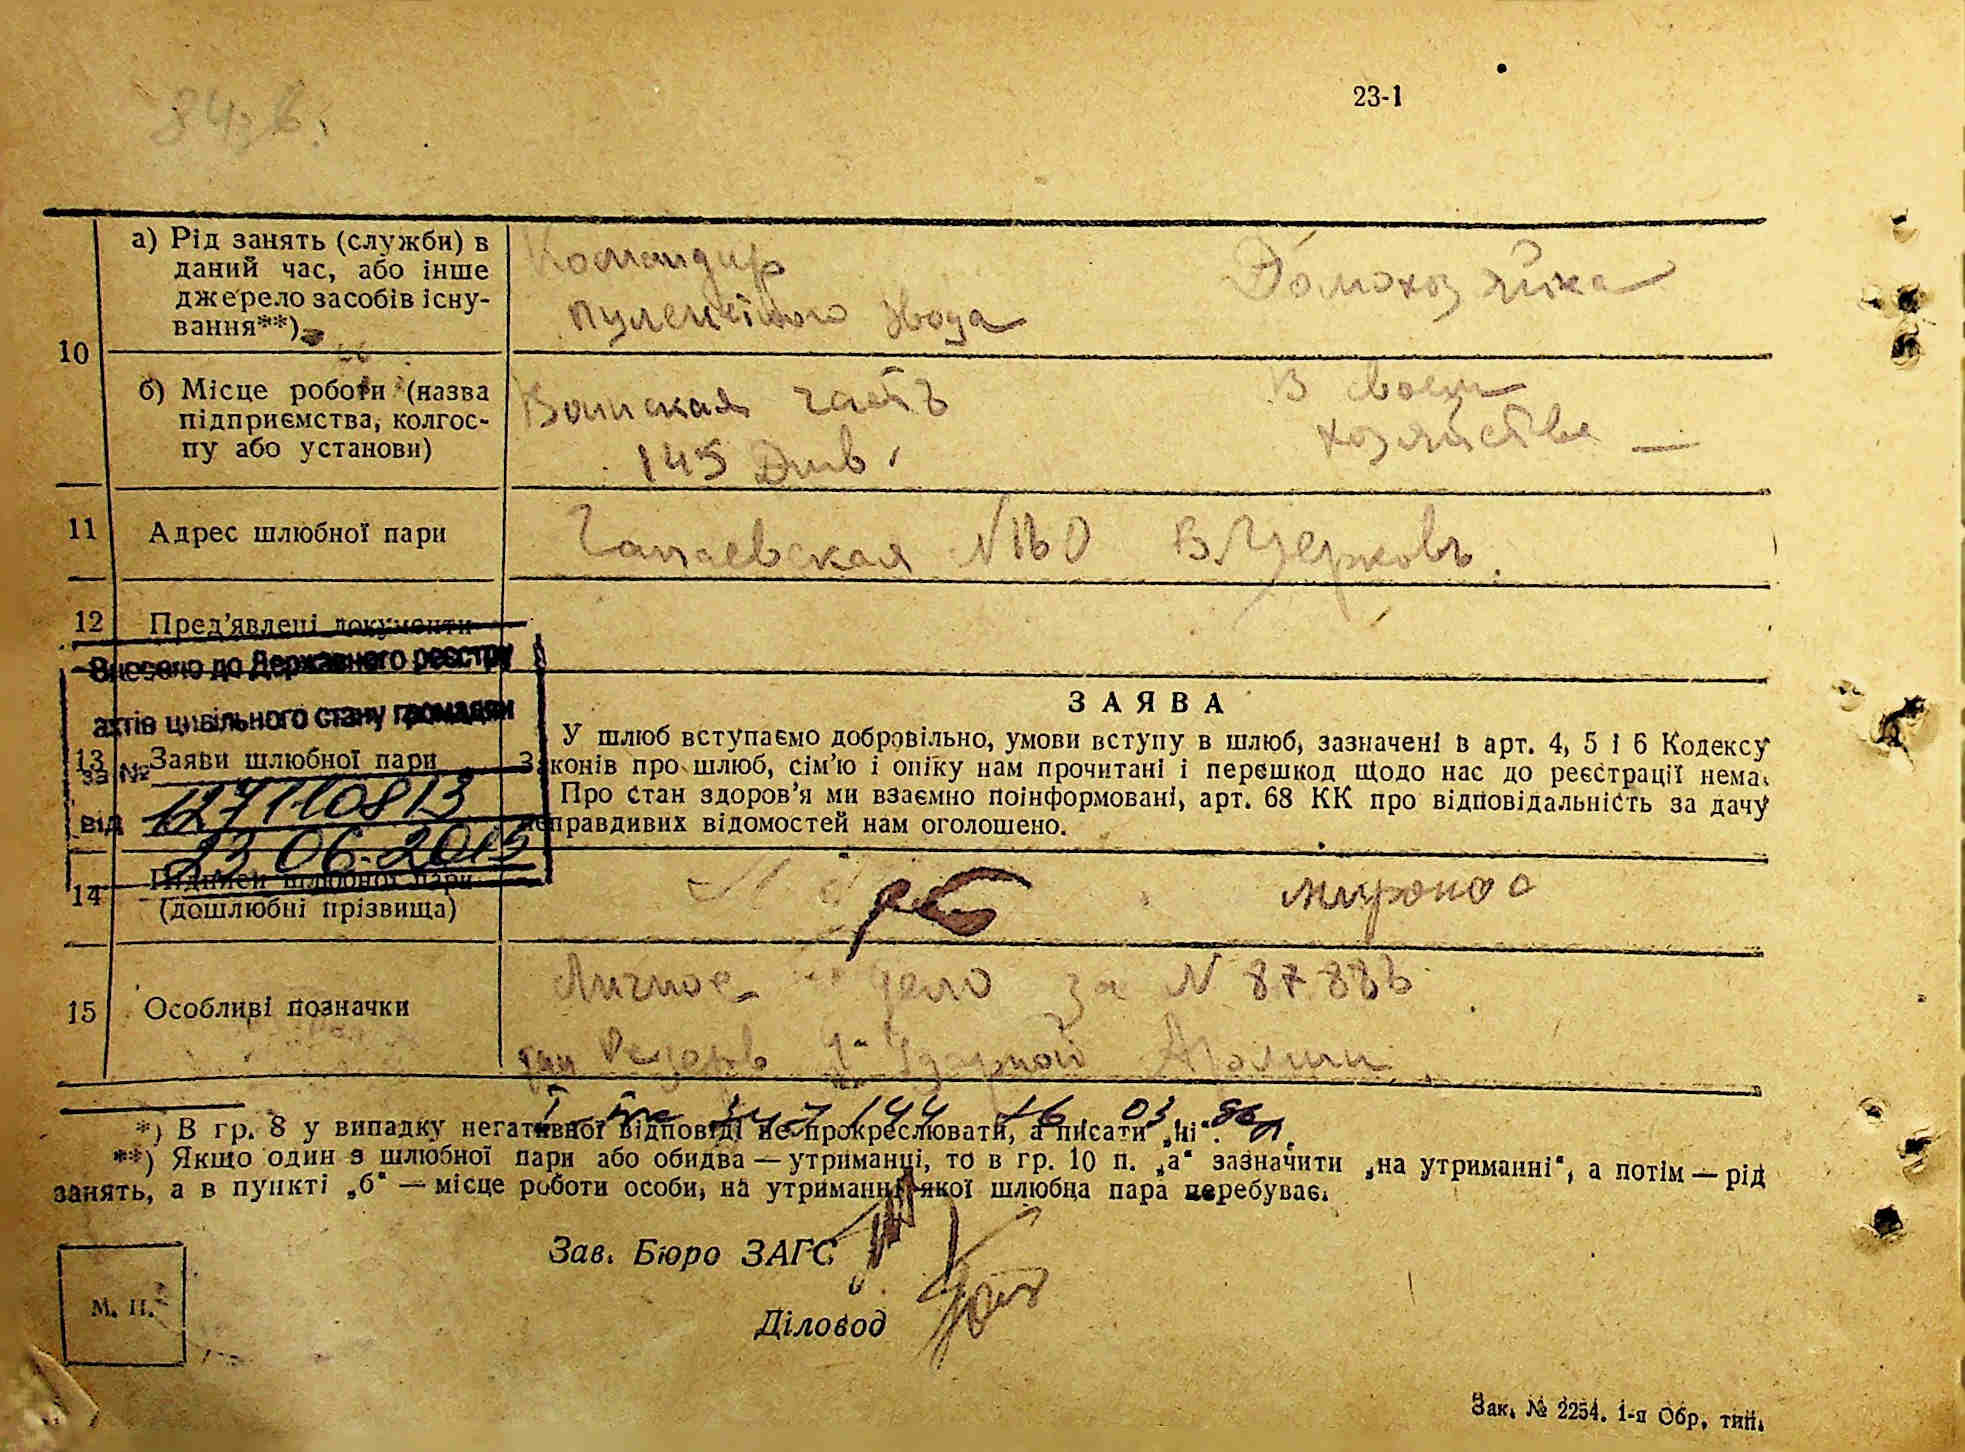 23-1
10
а) Рід занять (служби) в
даний час, або інше
джерело засобів існу-
вання**)
Командир
взвода
Домохозяйка
б) Місце роботи (назва
підприємства, колгос-
пу або установи)
Воинская часть
145 Див.
В своем
хозяйстве —
11
Адрес шлюбної пари
Чапаевская В. Церковь.
12
Пред'явлені документи
Внесено до Державного реєстру
актів цивільного стану громадян
за №
127110813
від
23.06.2015
13
Заяви шлюбної пари
ЗАЯВА
У шлюб вступаємо добровільно, умови вступу в шлюб, зазначені в арт. 4, 5 і 6 Кодексу
законів про шлюб, сім'ю і опіку нам прочитані і перешкод щодо нас до реєстрації нема.
Про стан здоров'я ми взаємно поінформовані, арт. 68 КК про відповідальність за дачу
неправдивих відомостей нам оголошено.
14
Підписи шлюбної пари
(дошлюбні прізвища)
15
Особливі позначки
Личное дело за N
Резерв Ударной Армии
*) В гр. 8 у випадку негативної відповіді не прокреслювати, а писати „ні".
**) Якщо один з шлюбної пари або обидва — утриманці, то в гр. 10 п. „а" зазначити „на утриманні", а потім — рід
занять, а в пункті „б" — місце роботи особи, на утриманні якої шлюбна пара перебуває.
Зав. Бюро ЗАГС
Діловод
М. П.
Зак. № 2254. 1-я Обр. тип.